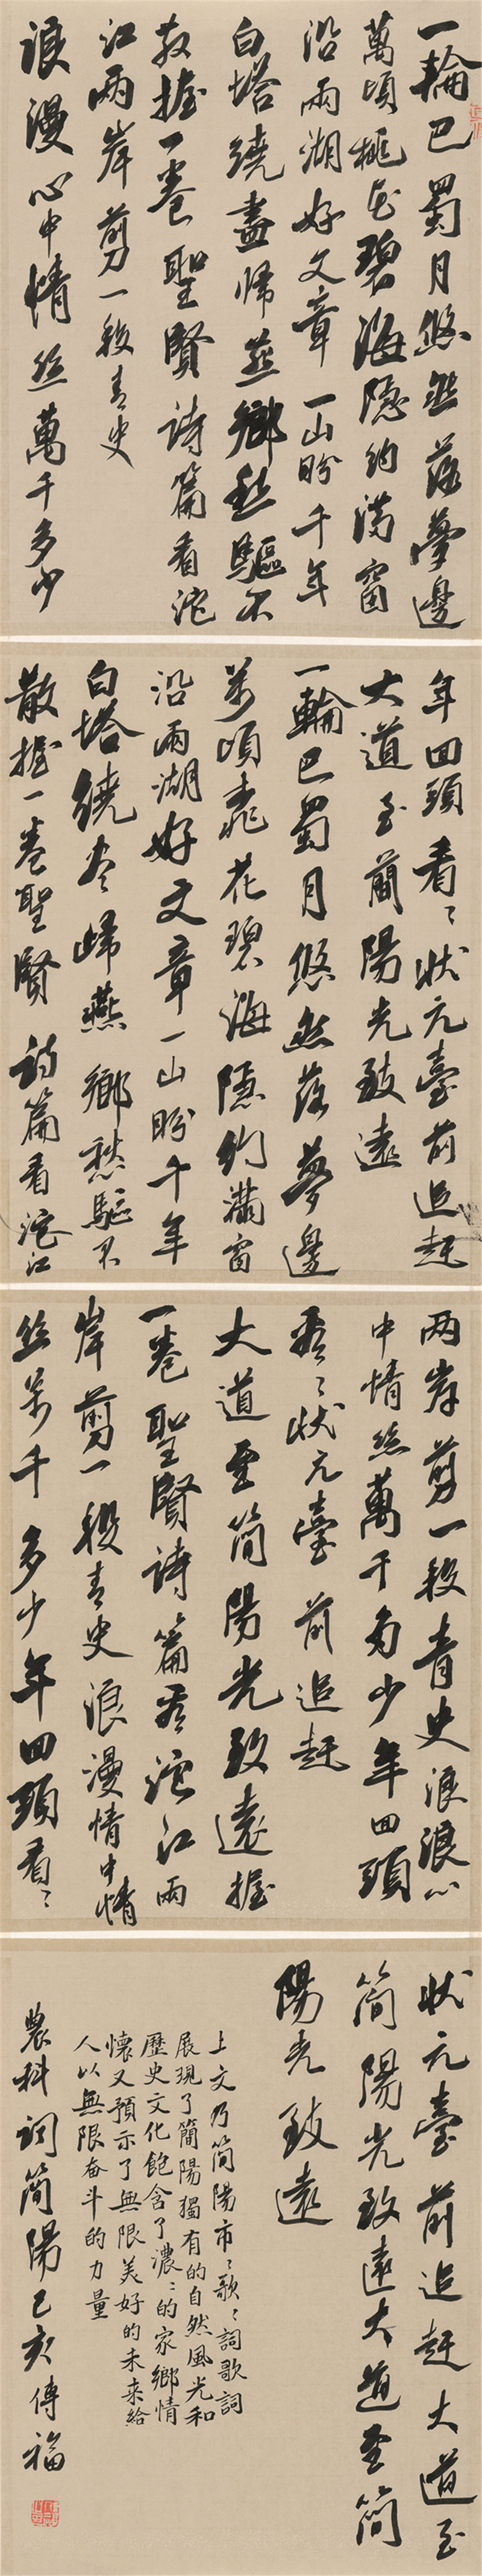 一輪巴蜀月悠然落夢邊
萬頃桃花碧海隱約滿窗
沿兩湖好文章一山盼千年
白塔繞盡歸燕鄉愁驅不
散握一卷聖賢詩篇看沱
江兩岸剪一段青史
浪漫心中情絲萬千多少
年回頭看看狀元臺前追趕
大道至簡陽光致遠
一輪巴蜀月悠然落夢邊
萬頃桃花碧海隱約滿窗
沿兩湖好文章一山盼千年
白塔繞盡歸燕鄉愁驅不
散握一卷聖賢詩篇看沱江
兩岸剪一段青史浪浪心
中情絲萬千多少年回頭
看看狀元臺前追趕
大道至简陽光致遠握
一卷聖賢詩篇看沱江兩
岸剪一段青史浪漫情中情
絲萬千多少年回頭看看
狀元臺前追趕大道至
简陽光致遠大道至简
陽光致遠
上文乃简陽市市歌歌詞歌詞
展現了簡陽獨有的自然風光和
歷史文化飽含了濃濃的家鄉情
懷又預示了無限美好的未来給
人以無限奋斗的力量
農科詞简陽己亥傳福